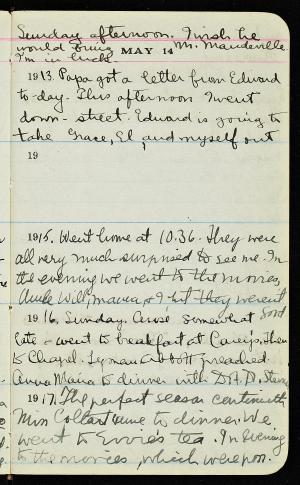 Sunday afternoon. I wish he
would bring Mr. Mandeville.
I'm in luck.
MAY 14
1913. Papa got a letter from Edward
to-day. This afternoon I went
down-street. Edward is going to
take Grace, El, and myself out
19
1915. Went home at 10.36. They were
all very much surprised to see me. In
the evening we went to the movies,
Aunt Will, mama & I but they weren't
good
1916. Sunday. Arose somewhat
late - went to breakfast at Carey's, then
to Chapel. Lyman Abbott preached.
Anna Maria to dinner with D.H.D.
1917. The perfect season continueth
Miss Coltart came to dinner. We
went to Evvie's tea. In evening
to the movies, which were poor.